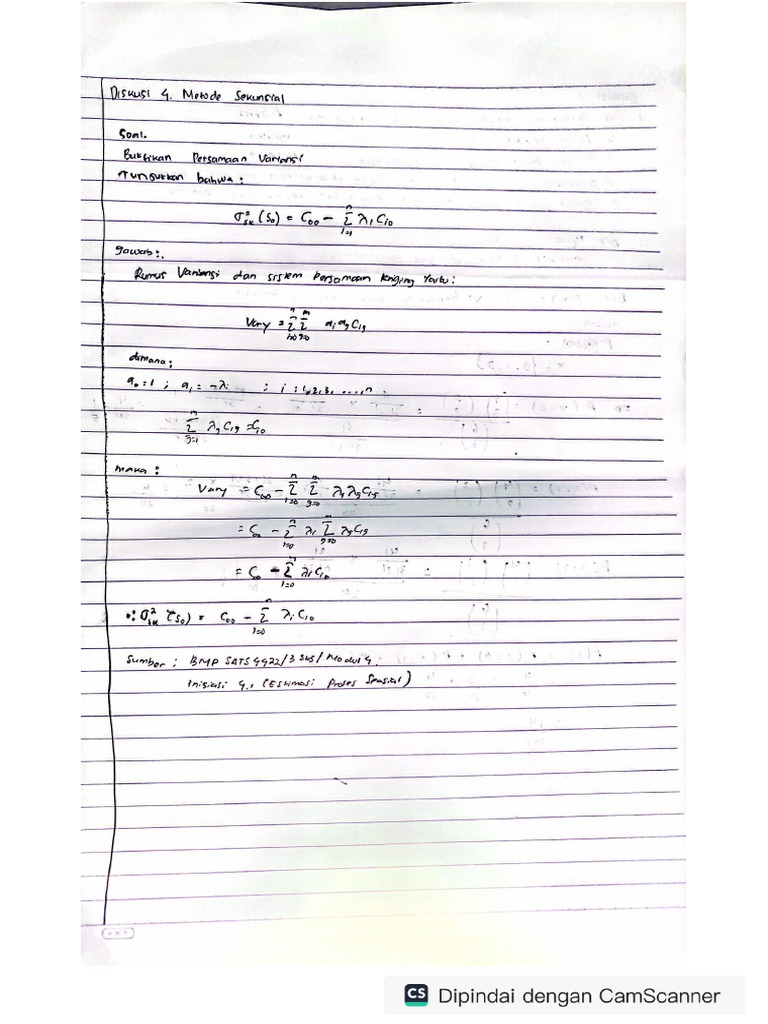 Diskusi 4. Metode Sekunsial
Soal.
Buktikan Persamaan Variansi
Tunjukkan bahwa :
σ²ₛₖ (S₀) = C₀₀ − Σⁿᵢ₌₁ λᵢ Cᵢ₀
Jawab :.
Rumus Variansi dan sistem persamaan kriging Yaitu :
Var y = Σⁿᵢ₌₀ Σⁿⱼ₌₀ aᵢ aⱼ Cᵢⱼ
dimana ;
a₀ = 1 ; aᵢ = −λᵢ ; i = 1, 2, 3, ...., n
Σⁿⱼ₌₁ λⱼ Cᵢⱼ = Cᵢ₀
maka :
Var y = C₀₀ − Σⁿᵢ₌₀ Σⁿⱼ₌₀ λᵢ λⱼ Cᵢⱼ
= C₀₀ − Σⁿᵢ₌₀ λᵢ Σⁿⱼ₌₀ λⱼ Cᵢⱼ
= C₀ − Σⁿᵢ₌₀ λᵢ Cᵢ₀
∴ σ²ₛₖ (S₀) = C₀₀ − Σⁿᵢ₌₀ λᵢ Cᵢ₀
Sumber : BMP SATS 4422/3 SKS/ Modul 4.
Inisiasi 4. (Estimasi Proses Spasial)
CS Dipindai dengan CamScanner